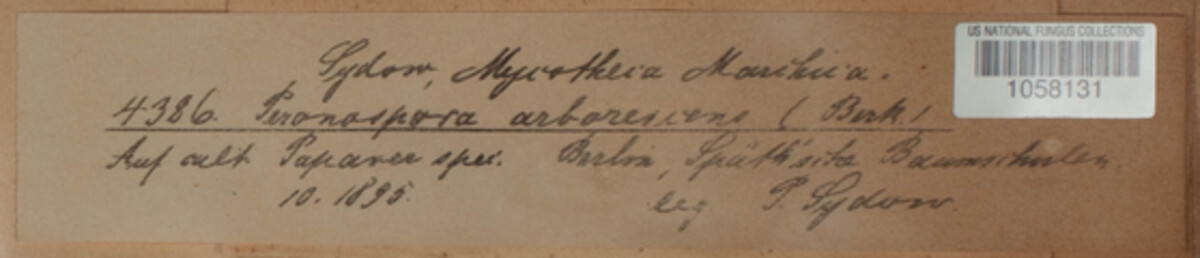 Sydow, Mycotheca Marchica.
4386. Peronospora arborescens (Berk)
Auf cult. Papaver spec. Berlin, Späth'sche Baumschulen.
10. 1895.
leg P. Sydow.
US NATIONAL FUNGUS COLLECTIONS
1058131